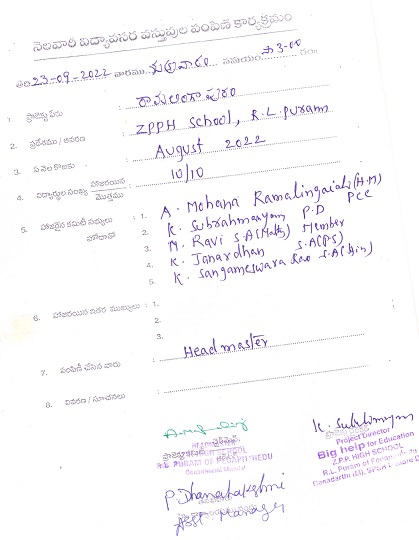 నెలవారీ విద్యావసర వస్తువుల పంపిణీ కార్యక్రమం
తేది: 23-09-2022 వారము శుక్రవారం సమయం సా 3-00 గం.
1. ప్రాజెక్టు పేరు : రామలింగాపురం
2. ప్రదేశము / ఆవరణ : ZPPH School, R.L. puram
3. ఏ నెల కొరకు : August 2022
4. విద్యార్థుల సంఖ్య హాజరయిన / మొత్తము : 10/10
5. హాజరైన కమిటీ సభ్యులు : 1. A. Mohana Ramalingaiah (H.M)
హోదాతో 2. K. Subrahmanyam P.D PCC
3. M. Ravi S.A (Maths) Member
4. K. Janardhan S.A (PS)
5. K. Sangameswara Rao S.A (Hin)
6. హాజరయిన ఇతర ముఖ్యులు : 1.
2.
3.
7. పంపిణీ చేసిన వారు : Headmaster
8. వివరణ / సూచనలు :
K. Subrahmanyam
ప్రాజెక్టు డైరెక్టర్
Project Director
Big help for Education
Z.P.P. HIGH SCHOOL
HIGH SCHOOL
R.L PURAM OF PERAPATHEDU
P. Dhanalakshmi
Asst Manager